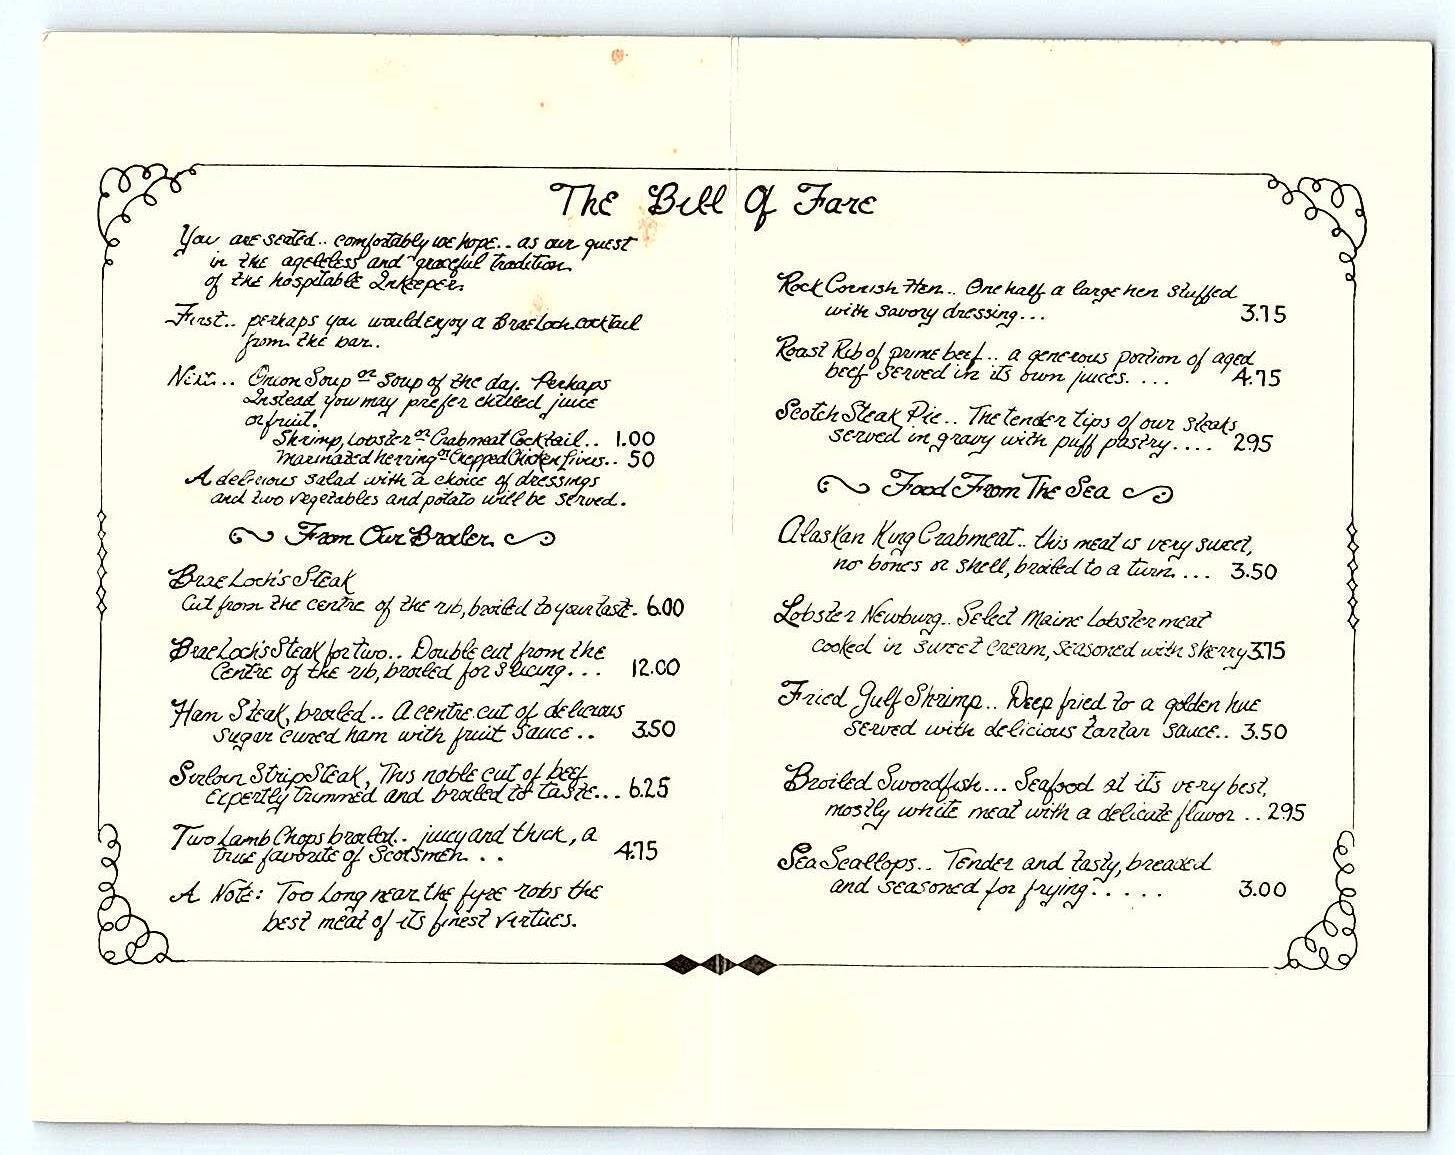 The Bill Of Fare
You are seated.. comfortably we hope.. as our guest
in the ageless and graceful tradition
of the hospitable Inkeeper.
First.. perhaps you would enjoy a Brae Loch cocktail
from the bar..
Next.. Onion Soup or Soup of the day. Perhaps
Instead you may prefer chilled juice
or fruit.
Shrimp, Lobster or Crabmeat Cocktail.. 1.00
Marinated herring or Chopped Chicken Livers.. 50
A delicious salad with a choice of dressings
and two vegetables and potato will be served.
From Our Broiler
Brae Loch's Steak
Cut from the centre of the rib, broiled to your taste. 6.00
Brae Loch's Steak for two.. Double cut from the
Centre of the rib, broiled for slicing... 12.00
Ham Steak, broiled.. A centre cut of delicious
sugar cured ham with fruit sauce.. 3.50
Sirloin Strip Steak, This noble cut of beef
Expertly trimmed and broiled to taste... 6.25
Two Lamb Chops broiled.. juicy and thick, a
true favorite of Scotsmen... 4.75
A Note: Too long near the fyre robs the
best meat of its finest virtues.
Rock Cornish Hen.. One half a large hen stuffed
with savory dressing... 3.75
Roast Rib of prime beef.. a generous portion of aged
beef served in its own juices.... 4.75
Scotch Steak Pie.. The tender tips of our steaks
served in gravy with puff pastry.... 2.95
Food From The Sea
Alaskan King Crabmeat.. this meat is very sweet,
no bones or shell, broiled to a turn... 3.50
Lobster Newburg.. Select Maine Lobster meat
cooked in sweet cream, seasoned with sherry 3.75
Fried Gulf Shrimp.. Deep fried to a golden hue
served with delicious tartar sauce.. 3.50
Broiled Swordfish... Seafood at its very best,
mostly white meat with a delicate flavor.. 2.95
Sea Scallops.. Tender and tasty, breaded
and seasoned for frying..... 3.00